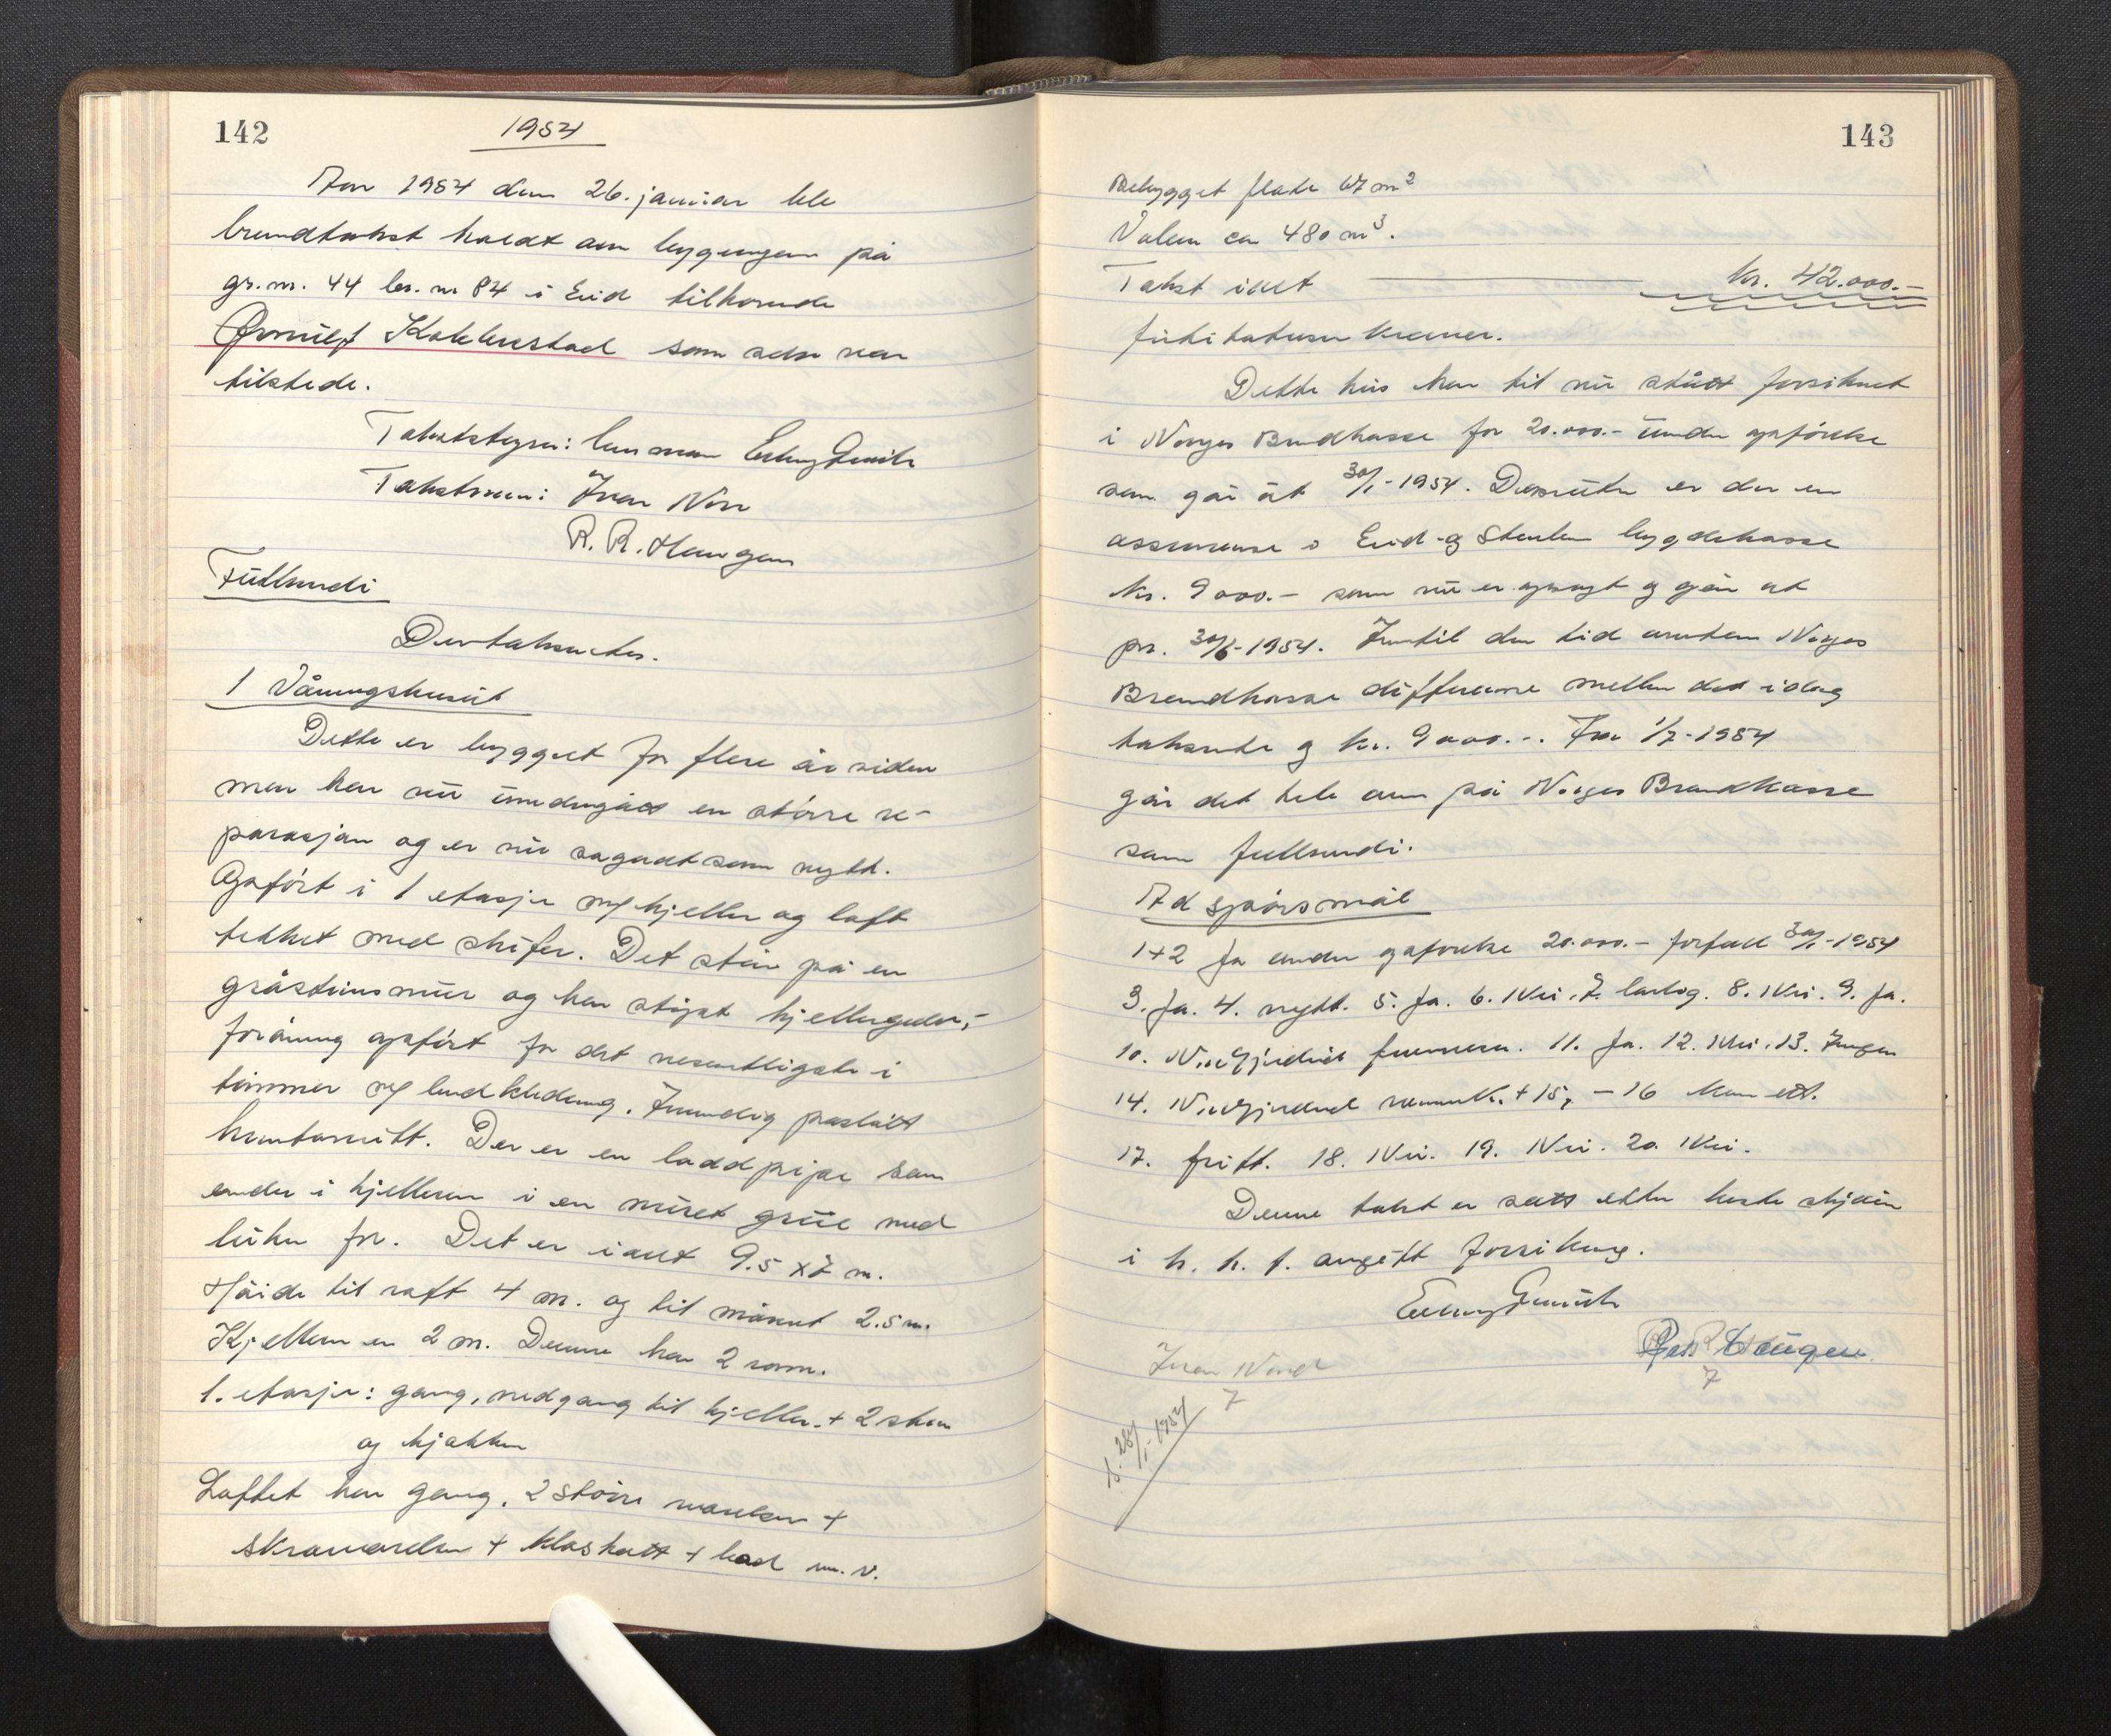 142
1954
Aar 1954 den 26. januar ble
brandtakst holdt over bygningen på
gr.nr. 44 br.nr 84 i Eid tilhørende
Ørnulf Kobberstad som selv var
tilstede.
Takststyrer: lensmann Erling
Takstmenn: Ivar Nor
R. R. Haugen
Fullverdi
Der takseretes.
1 Våningshuset
Dette er bygget for flere år siden
men har nu undergått en større re-
parasjon og er nu sagodt som nytt.
Opført i 1 etasje m/kjeller og loft
tekket med skifer. Det står på en
gråsteinsmur og har støpt kjellergulv,
forøvrig opført for det vesentligste i
tømmer m/bordkledning. Innvendig påslått
huntonitt. Der er en laddpipe som
ender i kjelleren i en muret grue med
luker for. Det er i alt 9.5 x 7 m.
Høide til raft 4 m. og til mønet 2.5 m.
Kjelleren er 2 m. Denne har 2 rom.
1. etasje: gang, nedgang til kjeller + 2 stuer
og kjøkken
Loftet har gang, 2 større værelser +
skråværelse + kloskott + bad m. v.
143
Bebygget flate 67 m²
Volum ca 480 m³.
Takst i alt kr. 42.000.-
førtitotusen kroner.
Dette hus har til nu stått forsikret
i Norges Brandkasse for 20.000.- under opførelse
som går ut 30/1-1954. Dessuten er der en
assuranse i Eid og Stårheim bygdekasse
kr. 9000.- som nu er opsagt og går ut
pr. 30/6-1954. Inntil den tid overtar Norges
Brandkasse differanse mellem det idag
takserte og kr. 9000.-. Fra 1/7-1954
går det hele over på Norges Brandkasse
som fullverdi.
Ad spørsmål
1+2 Ja under opførelse 20.000.- forfall 30/1-1954
3. Ja. 4. nytt. 5. Ja. 6. Nei. 7. 8. Nei. 9. Ja.
10. 11. Ja. 12. Nei. 13. Ingen
14. + 15, - 16 Kan ett.
17. fritt. 18. Nei. 19. Nei. 20. Nei.
Denne takst er satt etter beste skjønn
i h. h. t. avgitt forsikring.
Erling
R R Haugen
Ivar Nor
28/1-1954